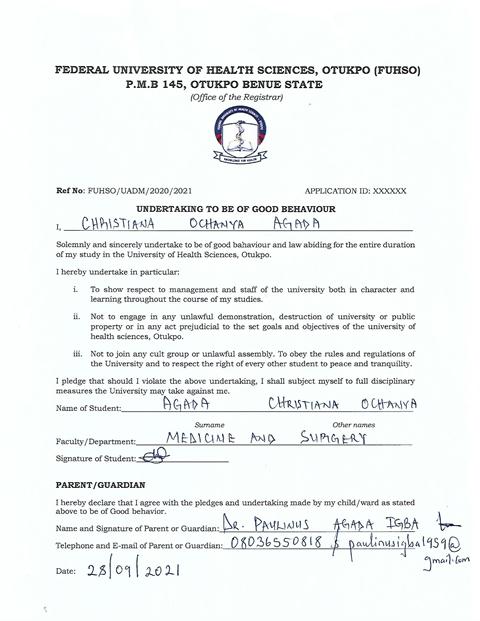 FEDERAL UNIVERSITY OF HEALTH SCIENCES, OTUKPO (FUHSO)
P.M.B 145, OTUKPO BENUE STATE
(Office of the Registrar)
Ref No: FUHSO/UADM/2020/2021 APPLICATION ID: XXXXXX
UNDERTAKING TO BE OF GOOD BEHAVIOUR
I, CHRISTIANA OCHANYA AGADA
Solemnly and sincerely undertake to be of good bahaviour and law abiding for the entire duration
of my study in the University of Health Sciences, Otukpo.
I hereby undertake in particular:
i. To show respect to management and staff of the university both in character and
learning throughout the course of my studies.
ii. Not to engage in any unlawful demonstration, destruction of university or public
property or in any act prejudicial to the set goals and objectives of the university of
health sciences, Otukpo.
iii. Not to join any cult group or unlawful assembly. To obey the rules and regulations of
the University and to respect the right of every other student to peace and tranquility.
I pledge that should I violate the above undertaking, I shall subject myself to full disciplinary
measures the University may take against me.
Name of Student: AGADA CHRISTIANA OCHANYA
Surname Other names
Faculty/Department: MEDICINE AND SURGERY
Signature of Student:
PARENT/GUARDIAN
I hereby declare that I agree with the pledges and undertaking made by my child/ward as stated
above to be of Good behavior.
Name and Signature of Parent or Guardian: DR. PAULINUS AGADA IGBA
Telephone and E-mail of Parent or Guardian: 08036550818 & paulinusigba1959@
gmail.com
Date: 28/09/2021